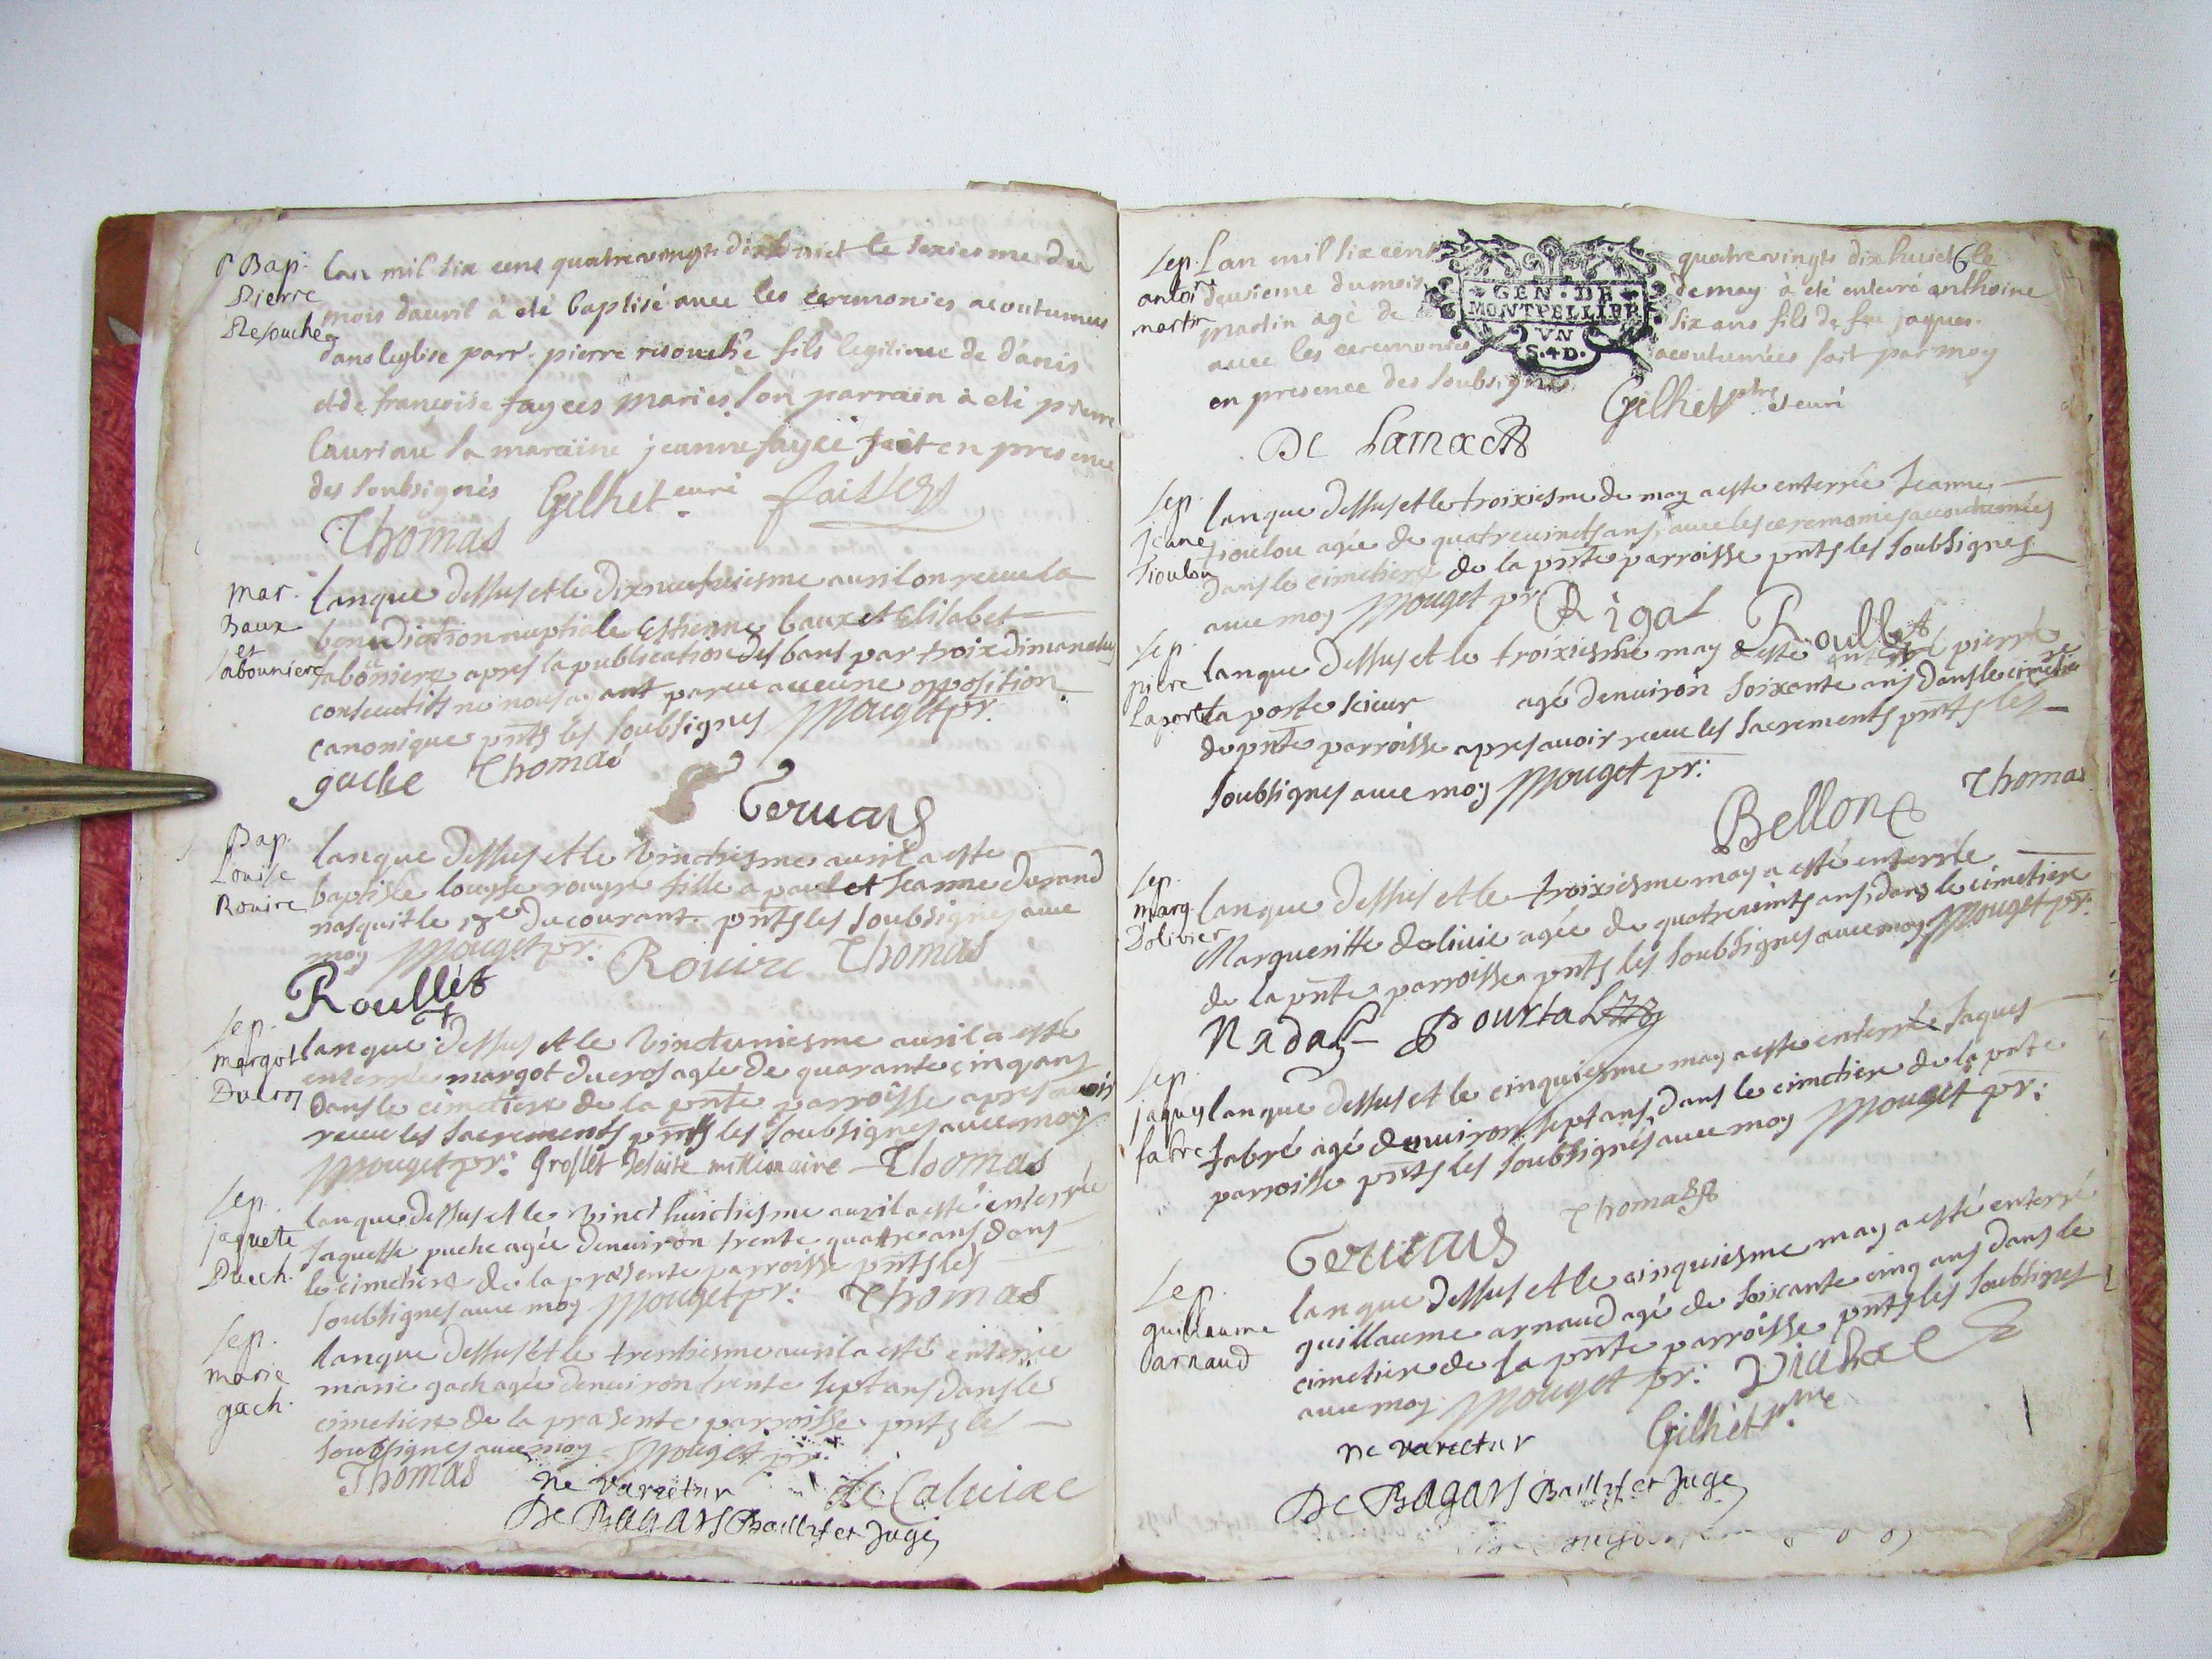 P Bap.
Pierre
Resouche
lan mil six cens quatre vingts dixhuict le sexiesme du
mois dauril à eté baptisé auec les ceremonies acoutumeés
dans leglise parr. pierre risouche fils legitime de danis
et de françoise fayees mariés son parrain à eté pierre
lauriau la maraine jeanne fayee fait en presence
des soubsignés Gilhet curé
Thomas
mar.
Baux
et
sabouniere
lanque dessus et le dixneufuiesme auril on receu la
benediction nuptiale Esthienne baux et Elisabet
saboniere apres la publication des bans par troix dimanches
consecutifs ne nous ayant pareu aucune opposition
canonique pnts les soubsignes Mouget pr.
gache Thomas
Geruais
Bap.
Louise
Rouire
lanque dessus et le vinctiesme auril a esté
baptisée louyse rouyre fille a paul et Jeanne durand
nasquit le 18e du courant pnts les soubsignes auec
moy Mouget pr: Rouire Thomas
Roullet
sep.
margot
Ducros
lanque dessus et le vinctuniesme auril a esté
enterrée margot ducros agée de quarante cinq ans
dans le cimetiere de la pnte parroisse apres auoir
receu les sacrements pnts les soubsignes auec moy
Mouget pr: Groslet Jesuite missionaire Thomas
sep.
jaquete
Puech.
lanque dessus et le vinct huictiesme auril a esté enterrée
Jaquette puche agée denuiron trente quattre ans dans
le cimetiere de la præsente parroisse pnts les
soubsignes auec moy Mouget pr: Thomas
sep.
marie
gach.
lanque dessus et le trentiesme auril a esté enterrée
marie gach agée denuiron trente sept ans dans le
cimetiere de la præsente parroisse pnts les
soubsignes auec moy Mouget pr:
Thomas ne varietur de Caluiac
De Bagars Baillif et Juge
sep.
antoi
martin
Lan mil six cens quatre vingts dix huict 6 le
deusieme du mois de may à eté enterré anthoine
martin agé de six ans fils de feu jaques.
auec les ceremonies acoutumées fait par moy
en presence des soubsignés Gilhet ptre et curé
GEN. DE
MONTPELLIER
VN
S. 4 D.
De Larnac
sep.
Jeane
Tioulou
lanque dessus et le troixiesme de may a esté enterrée Jeanne
tioulou agée de quatreuincts ans, auec les ceremonies accoutumées
dans le cimetiere de la pnte parroisse pnts les soubsignes
auec moy Mouget pr Rigal Roullet
sep.
piere
Laporte
lanque dessus et le troixiesme may a esté enterré pierre
la porte scieur agé denuiron soixante ans dans le cimetiere
de pnte parroisse apres auoir receu les sacrements pnts les
soubsignes auec moy Mouget pr:
Bellon Thomas
sep.
marg.
Dolivier
lanque dessus et le troixiesme may a esté enterrée
Margueritte doliuie agée de quatreuints ans, dans le cimetiere
de la pnte parroisse pnts les soubsignes auec moy Mouget pr:
Nadal Pourtal
sep.
jaques
fabre
lanque dessus et le cinquiesme may a esté enterrée Jaques
fabré agé denuiron sept ans, dans le cimetiere de la pnte
parroisse pnts les soubsignés auec moy Mouget pr:
Geruais Thomas
sep.
guillaume
arnaud
lanque dessus et le cinquiesme may a esté enterré
guillaume arnaud agé de soixante cinq ans dans le
cimetiere de la pnte parroisse pnts les soubsignes
auec moy Mouget pr:
Gilhet ptre
ne varietur
De Bagars Baillif et Juge